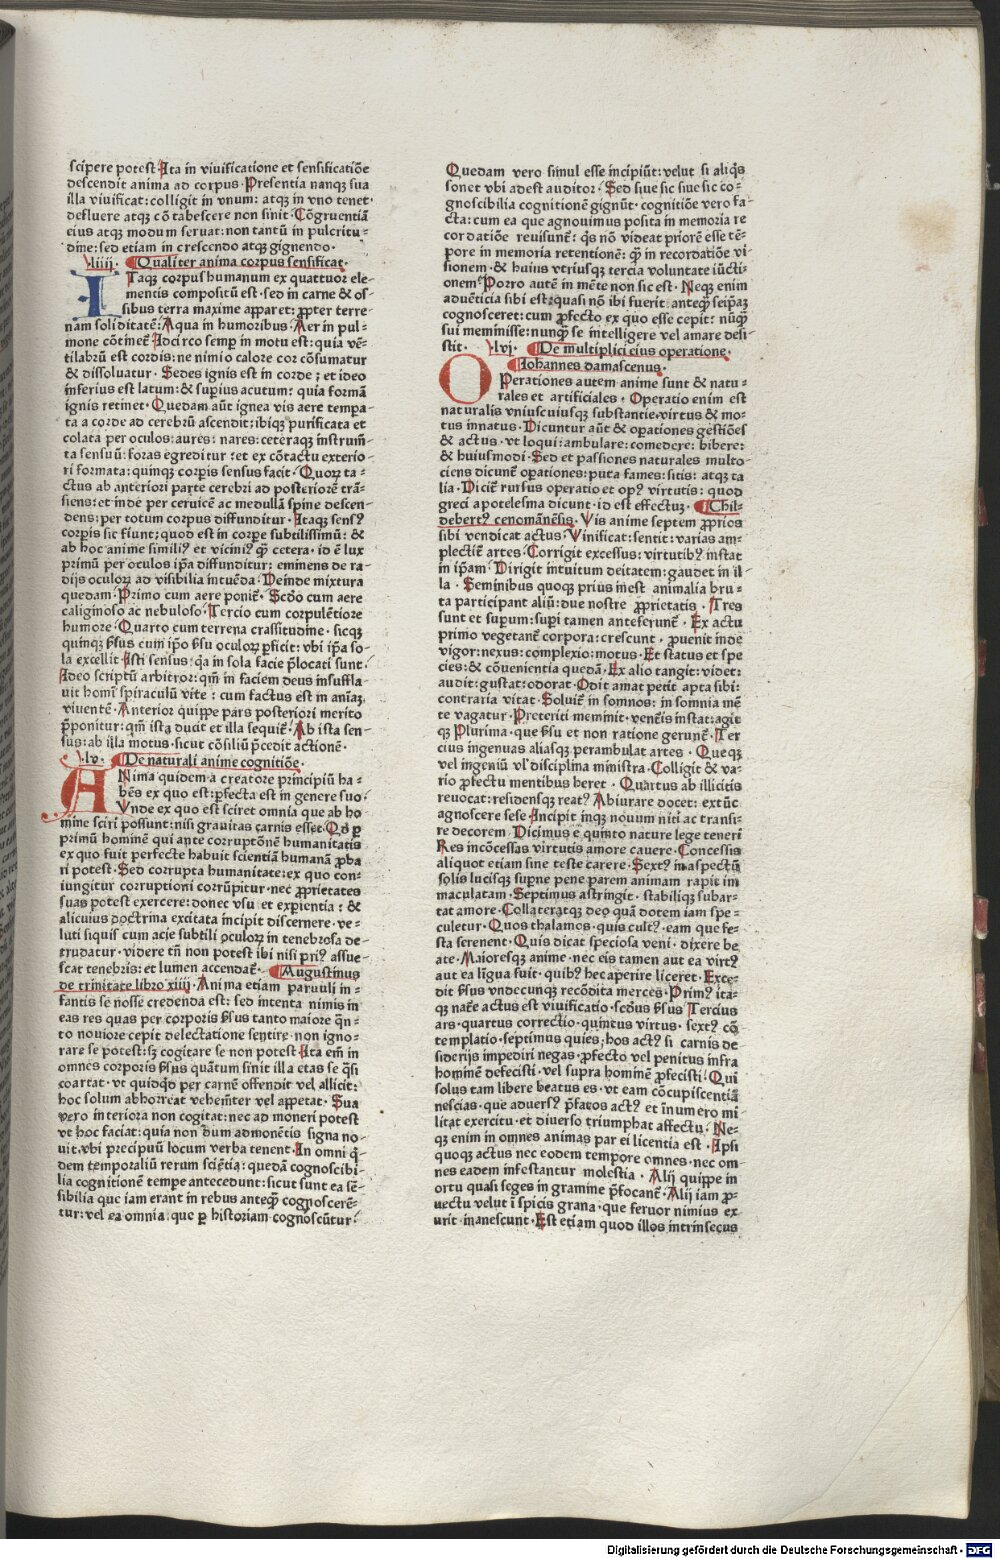 scipere potest·Ita in viuificatione et sensificatiõe
descendit anima ad corpus·Presentia nanqꝫ sua
illa viuificat:colligit in vnum: atqꝫ in vno tenet·
defluere atqꝫ cõ tabescere non sinit·Cõgruentiã
eius atqꝫ modum seruat:non tantũ in pulcritu-
dine:sed etiam in crescendo atqꝫ gignendo·
·liiij· Qualiter anima corpus sensificat·
ITaqꝫ corpus humanum ex quattuor ele-
mentis compositũ est·sed in carne & os-
sibus terra maxime apparet:ꝓpter terre
nam soliditatẽ:Aqua in humoribus·Aer in pul-
mone cõtinet᷑·Idcirco semꝑ in motu est:quia vẽ-
tilabrũ est cordis:ne nimio calore cor cõsumatur
& dissoluatur·Sedes ignis est in corde ; et ideo
inferius est latum:& suꝑius acutum: quia formã
ignis retinet·Quedam aũt ignea vis aere tempa-
ta a corde ad cerebrũ ascendit:ibiqꝫ purificata et
colata per oculos:aures:nares:ceteraqꝫ instrum̃-
ta sensuũ:foras egreditur:et ex cõtactu exterio-
ri formata:quinqꝫ corꝑis sensus facit·Quoꝝ ta-
ctus ab anteriori parte cerebri ad posteriorẽ trã-
siens:et inde per ceruicẽ ac medullã spine descen-
dens:per totum corpus diffunditur·Itaqꝫ sensꝰ
corꝑis sic fiunt:quod est in corpe subtilissimũ: &
ab hoc anime similiꝰ et viciniꝰ q̃ȝ cetera·id ẽ lux
primũ per oculos ip̃a diffunditur: eminens de ra-
dijs oculoꝝ ad visibilia intuẽda·Deinde mixtura
quedam·Primo cum aere ponit᷑·Scd̃o cum aere
caliginoso ac nebuloso·Tercio cum corpulẽtiore
humore·Quarto cum terrena crassitudine·sicqꝫ
quinqꝫ s̃sus cum ip̃o s̃su oculoꝝ ꝑficit:vbi ip̃a so-
la excellit·Isti sensus:q̃a in sola facie p̃locati sunt·
Ideo scriptũ arbitror:qm̃ in faciem deus insuffla-
uit homĩ spiraculũ vite : cum factus est in aniaꝫ
viuentẽ·Anterior quippe pars posteriori merito
p̃ponitur:qm̃ ista ducit et illa sequit᷑·Ab ista sen-
sus:ab illa motus·sicut cõsiliũ p̃cedit actionẽ·
·lv· De naturali anime cognitiõe·
ANima quidem a creatore principiũ ha-
bẽs ex quo est:ꝑfecta est in genere suo·
Vnde ex quo est sciret omnia que ab ho
mine sciri possunt:nisi grauitas carnis esset·Qd̃ ꝑ
primũ hominẽ qui ante corruptõnẽ humanitatis
ex quo fuit perfecte habuit scientiã humanã ꝓba
ri potest·Sed corrupta humanitate:ex quo con-
iungitur corruptioni corrũpitur·nec ꝓprietates
suas potest exercere:donec vsu et exꝑientia : &
alicuius doctrina excitata incipit discernere·ve-
luti siquis cum acie subtili oculoꝝ in tenebrosa de-
trudatur·videre tñ non potest ibi nisi priꝰ assue-
scat tenebris:et lumen accendat᷑· Augustinus
de trinitate libro xiiij·Anima etiam paruuli in-
fantis se nosse credenda est: sed intenta nimis in
eas res quas per corporis s̃sus tanto maiore q̃n-
to nouiore cepit delectatione sentire·non igno-
rare se potest:sꝫ cogitare se non potest·Ita em̃ in
omnes corporis s̃sus quãtum sinit illa etas se q̃si
coartat·vt quidq̃d per carnẽ offendit vel allicit:
hoc solum abhorreat vehem̃ter vel apꝑetat· Sua
vero interiora non cogitat:nec ad moneri potest
vt hoc faciat:quia non dum admonẽtis signa no-
uit·vbi precipuũ locum verba tenent·In omni q̃-
dem temporaliũ rerum sciẽtia:quedã cognoscibi-
lia cognitionẽ tempe antecedunt:sicut sunt ea sẽ-
sibilia que iam erant in rebus anteq̃ȝ cognoscerẽ-
tur:vel ea omnia·que ꝑ historiam cognoscũtur·
Quedam vero simul esse incipiũt:velut si aliq̃s
sonet vbi adest auditor·Sed siue sic siue sic co-
gnoscibilia cognitionẽ gignũt·cognitiõe vero fa-
cta:cum ea que agnouimus posita in memoria re
cordatiõe reuisunt᷑: q̃s nõ videat priorẽ esse tẽ-
pore in memoria retentionẽ: q̃ȝ in recordatiõe vi
sionem & huius vtriusqꝫ tercia voluntate iũcti-
onem·Porro autẽ in mẽte non sic est·Neqꝫ enim
aduẽticia sibi est:quasi nõ ibi fuerit·anteq̃ȝ seip̃aꝫ
cognosceret:cum ꝓfecto ex quo esse cepit: nũq̃ȝ
sui meminisse:nunq̃ȝ se intelligere vel amare desi
stit· ·lvj· De multiplici eius operatione·
Iohannes damascenus·
OPerationes autem anime sunt & natu-
rales et artificiales·Operatio enim est
naturalis vniuscuiusqꝫ substantie·virtus & mo-
tus innatus·Dicuntur aũt & oꝑationes gestiões
& actus·vt loqui:ambulare:comedere:bibere:
& huiusmodi·Sed et passiones naturales multo-
ciens dicunt᷑ oꝑationes:puta fames:sitis: atqꝫ ta
lia·Dicit᷑ rursus operatio et opꝰ virtutis: quod
greci apotelesma dicunt·id est effectuꝫ· Chil-
debertꝰ cenomãnẽsis·Vis anime septem ꝓprios
sibi vendicat actus·Viuificat:sentit:varias am-
plectit᷑ artes·Corrigit excessus:virtutibꝰ instat
in ip̃am·Dirigit intuitum deitatem:gaudet in il-
la·Seminibus quoqꝫ prius inest animalia bru-
ta participant aliũ:due nostre ꝓprietatis·Tres
sunt et suꝑum:suꝑi tamen anteferunt᷑·Ex actu
primo vegetant᷑ corpora:crescunt·ꝓuenit inde
vigor:nexus:complexio:motus·Et status et spe
cies:& cõuenientia quedã·Ex alio tangit:videt:
audit:gustat:odorat·Odit amat petit apta sibi:
contraria vitat·Soluit᷑ in somnos: in somnia mẽ
te vagatur·Preteriti meminit·venẽis instat:agit
qꝫ Plurima·que s̃su et non ratione gerunt᷑·Ter
cius ingenuas aliasqꝫ perambulat artes·Queqꝫ
vel ingeniũ vl̕ disciplina ministra·Colligit & va-
rio ꝓfectu mentibus heret·Quartus ab illicitis
reuocat:residensqꝫ reatꝰ Abiurare docet: extũc
agnoscere sese·Incipit inqꝫ nouum niti ac transi-
re decorem·Dicimus e quinto nature lege teneri
Res incõcessas virtutis amore cauere·Concessis
aliquot etiam sine teste carere·Sextꝰ inaspectũ
solis lucisqꝫ suꝑne pene parem animam rapit in
maculatam·Septimus astringit·stabiliqꝫ subar-
tat amore·Collateratqꝫ deo quã dotem iam spe-
culetur·Quos thalamos·quis cultꝰ·eam que fe-
sta serenent·Quis dicat speciosa veni·dixere be
ate·Maioresqꝫ anime·nec eis tamen aut ea virtꝰ
aut ea lĩgua fuit·quibꝰ hec aperire liceret·Exce-
dit s̃sus vndecunqꝫ recõdita merces·Primꝰ ita-
qꝫ nat̃e actus est viuificatio·scd̃us s̃sus Tercius
ars·quartus correctio·quintus virtus·sextꝰ cõ
templatio·septimus quies·hos actꝰ si carnis de
siderijs impediri negas·ꝓfecto vel penitus infra
hominẽ defecisti·vel supra hominẽ ꝓfecisti·Qui
solus tam libere beatus es·vt eam cõcupiscentiã
nescias·que aduersꝰ p̃fatos actꝰ et innumero mi-
litat exercitu·et diuerso triumphat affectu·Ne-
qꝫ enim in omnes animas par ei licentia est·Ipsi
quoqꝫ actus nec eodem tempore omnes·nec om-
nes eadem infestantur molestia·Alij quippe in
ortu quasi seges in gramine p̃focant᷑·Alij iam ꝓ-
uectu velut i spicis grana·que feruor nimius ex-
urit·inanescunt·Est etiam quod illos intrinsecus
Digitalisierung gefördert durch die Deutsche Forschungsgemeinschaft - DFG